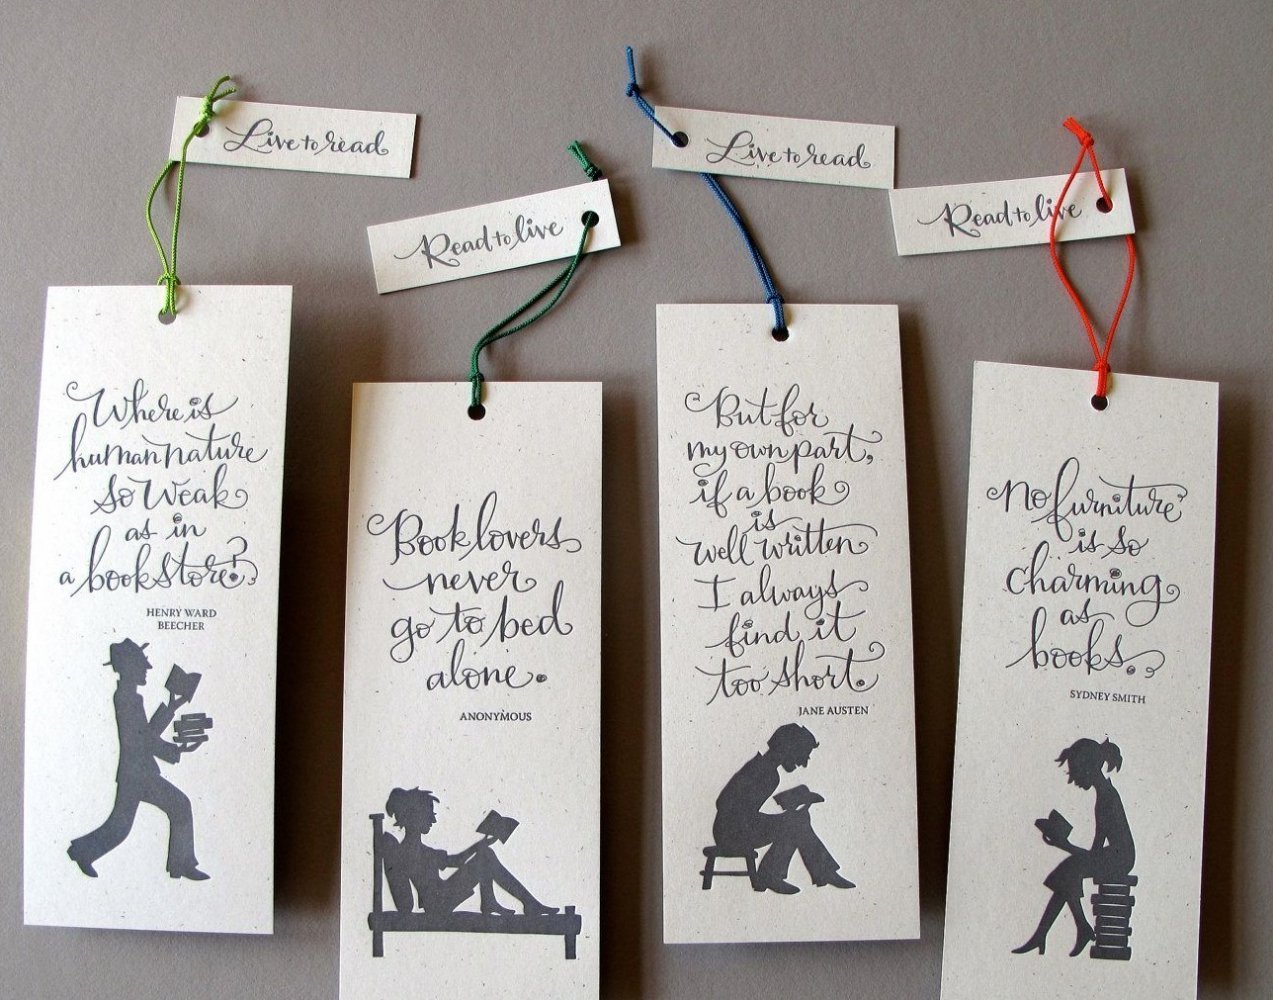 Live to read
Read to live
Live to read
Read to live
Where is
human nature
so weak
as in
a bookstore?
HENRY WARD
BEECHER
Book lovers
never
go to bed
alone.
ANONYMOUS
But for
my own part,
if a book
is
well written
I always
find it
too short.
JANE AUSTEN
No furniture
is so
charming
as
books.
SYDNEY SMITH